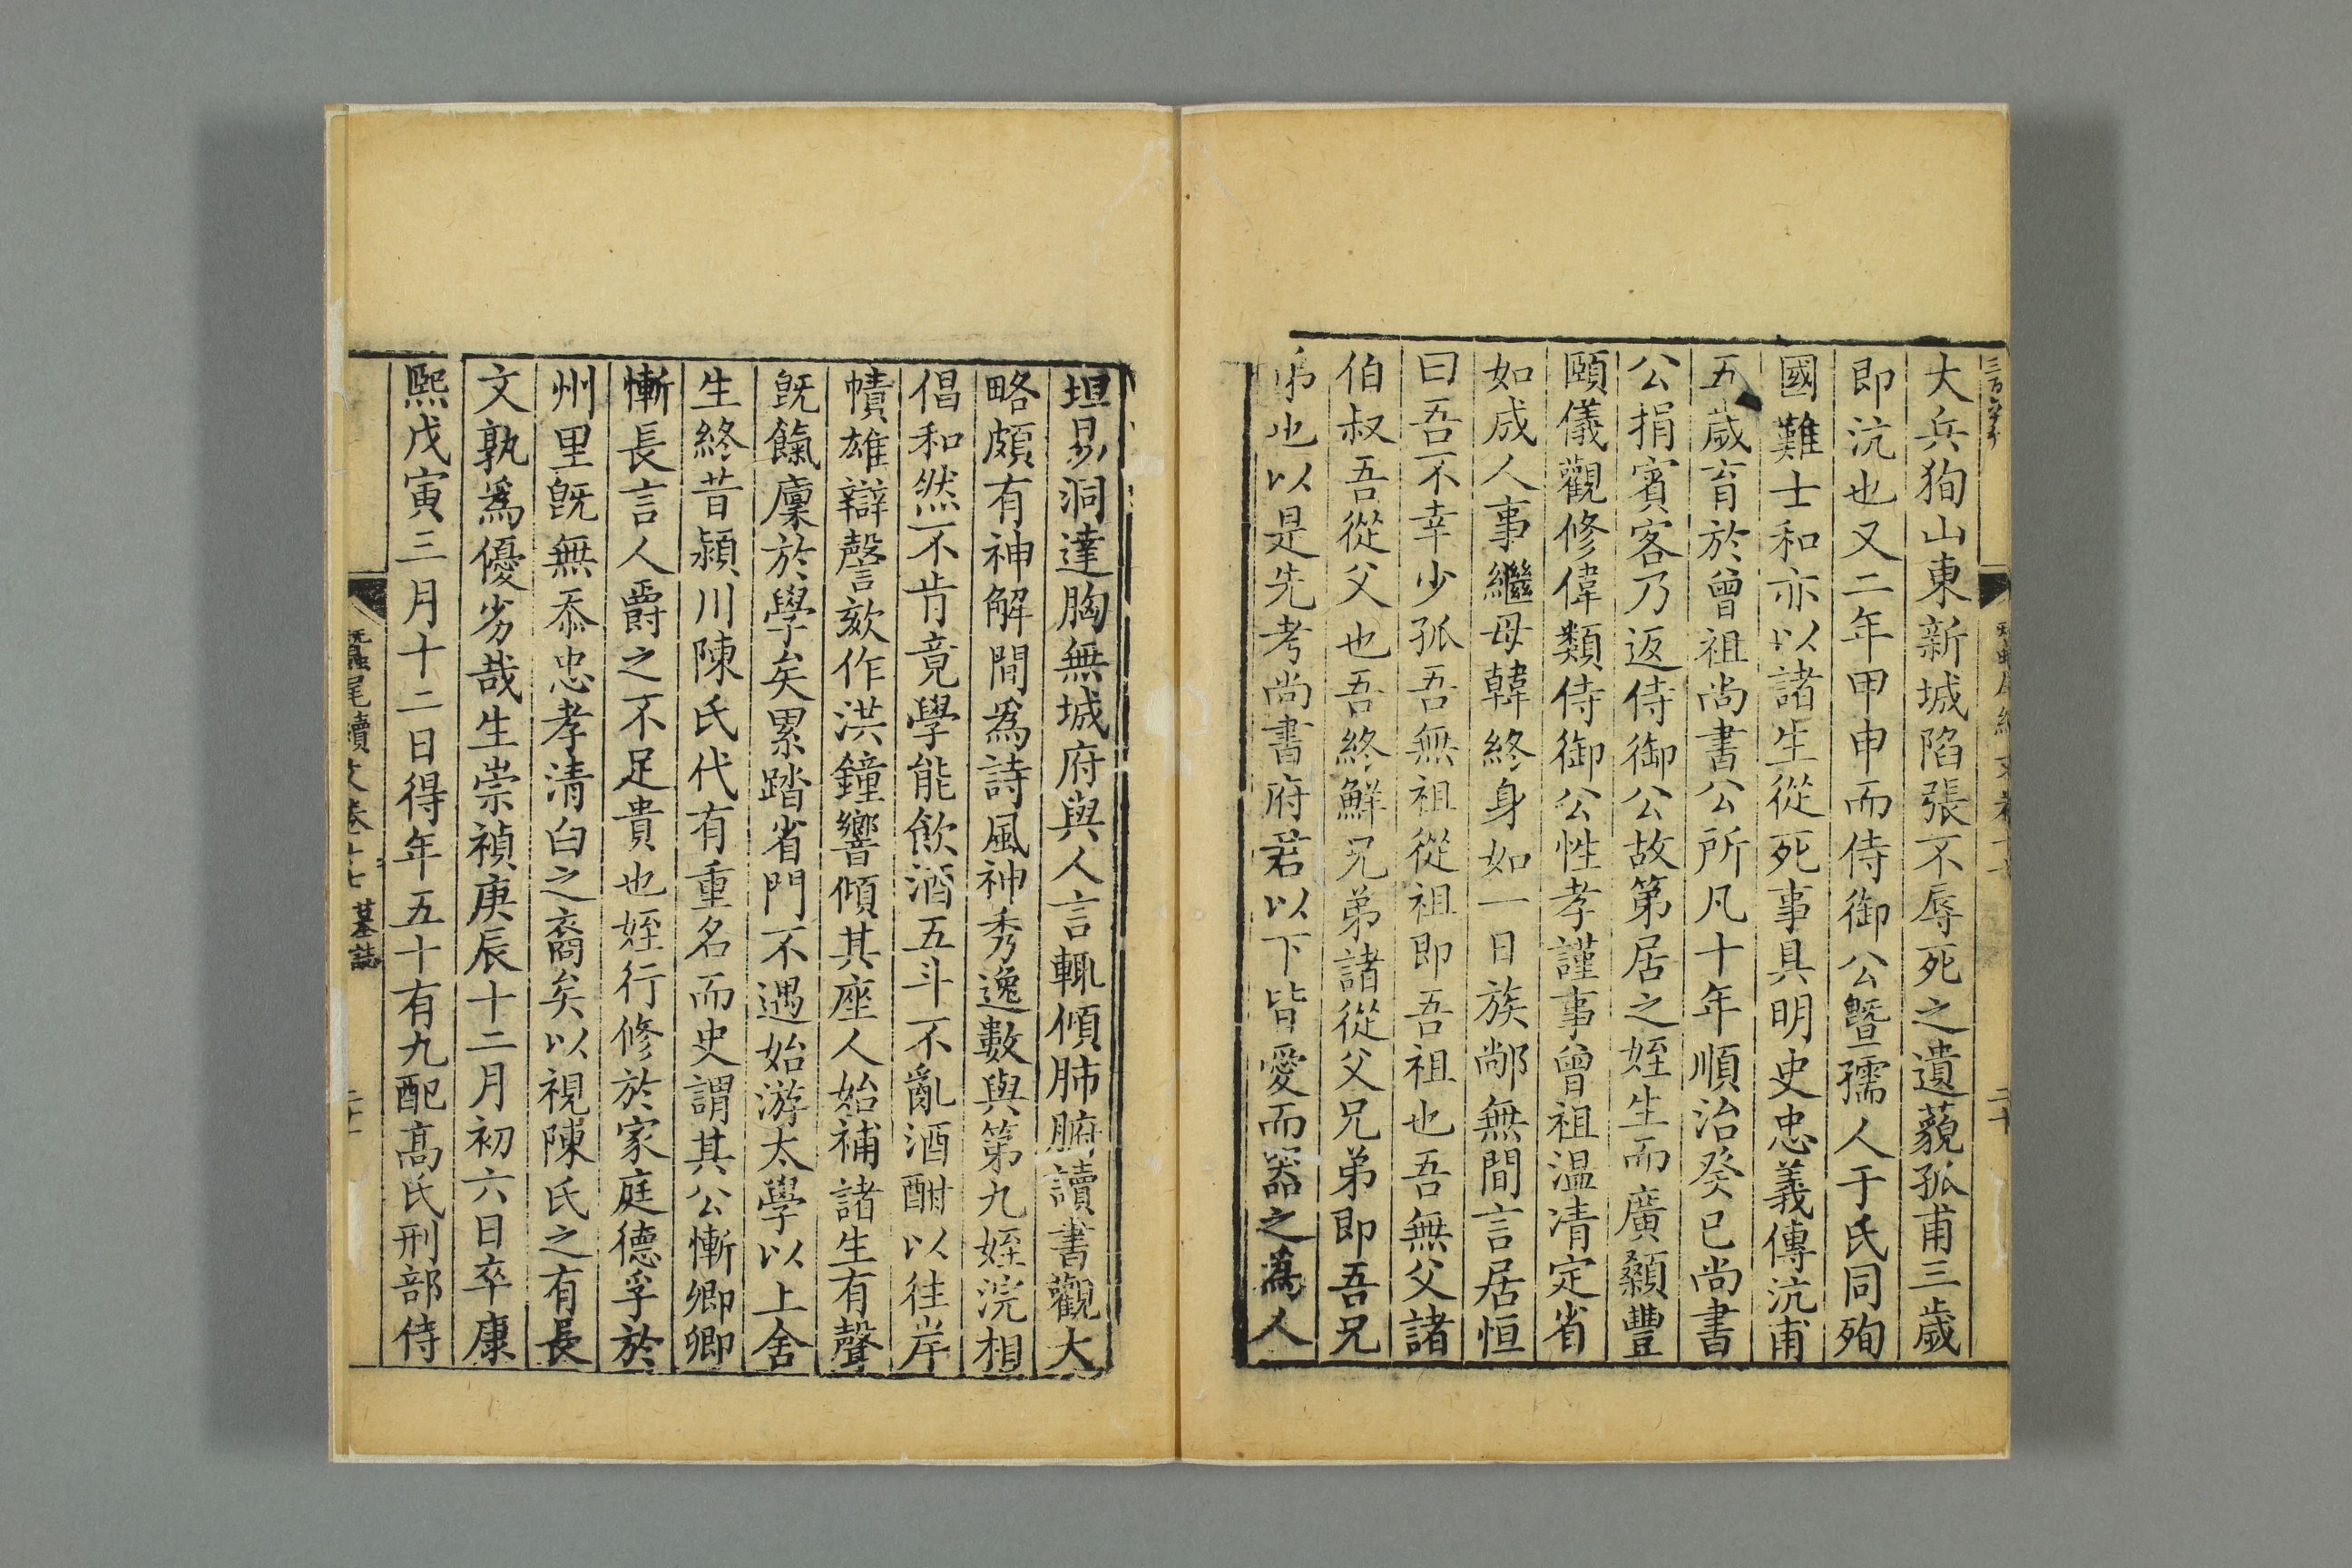 大兵狥山東新城陷張不辱死之遺藐孤甫三歲
即沆也又二年甲申而侍御公曁孺人于氏同殉
國難士和亦以諸生從死事具明史忠義傳沆甫
五歲育於曾祖尚書公所凡十年順治癸巳尚書
公捐賓客乃返侍御公故第居之姪生而廣顙豐
頤儀觀修偉類侍御公性孝謹事曾祖温凊定省
如成人事繼母韓終身如一日族鄰無間言居恒
曰吾不幸少孤吾無祖從祖即吾祖也吾無父諸
伯叔吾從父也吾終鮮兄弟諸從父兄弟即吾兄
弟也以是先考尚書府君以下皆愛而器之為人
坦易洞達胸無城府與人言輒傾肺腑讀書觀大
略頗有神解間爲詩風神秀逸數與第九姪浣相
倡和然不肯竟學能飲酒五斗不亂酒酣以往岸
幘雄辯謦欬作洪鐘響傾其座人始補諸生有聲
旣餼廩於學矣累踏省門不遇始游太學以上舍
生終昔潁川陳氏代有重名而史謂其公慚卿卿
慚長言人爵之不足貴也姪行修於家庭德孚於
州里旣無忝忠孝清白之裔矣以視陳氏之有長
文孰爲優劣哉生崇禎庚辰十二月初六日卒康
熙戊寅三月十二日得年五十有九配高氏刑部侍
蠶尾續文卷十七 墓誌
二十一